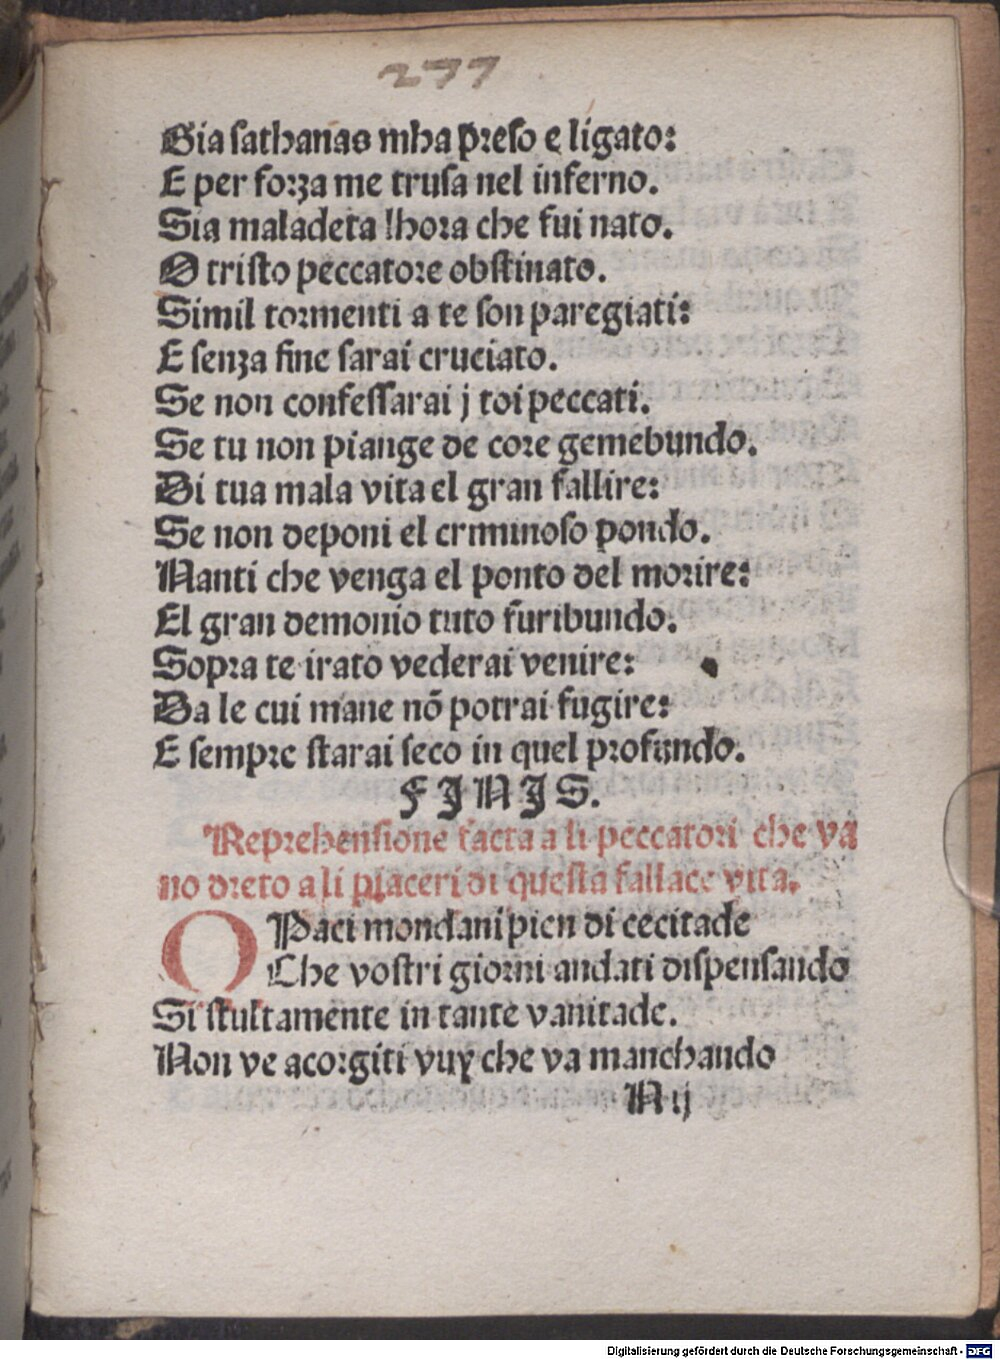 277
Gia sathanas mha preso e ligato:
E per forza me trusa nel inferno.
Sia maladeta lhora che fui nato.
O tristo peccatore obstinato.
Simil tormenti a te son paregiati:
E senza fine sarai cruciato.
Se non confessarai j toi peccati.
Se tu non piange de core gemebundo.
Di tua mala vita el gran fallire:
Se non deponi el crminoso pondo.
Nanti che venga el ponto del morire:
El gran demonio tuto furibundo.
Sopra te irato vederai venire:
Da le cui mane nō potrai fugire:
E sempre starai seco in quel profundo.
FINIS.
Reprehensione facta a li peccatori che va
no dreto a li placeri di questa fallace vita.
O Paci mondani pien di cecitade
Che vostri giorni andati dispensando
Si stultamente in tante vanitade.
Non ve acorgiti vuy che va manchando
N ij
Digitalisierung gefördert durch die Deutsche Forschungsgemeinschaft - DFG